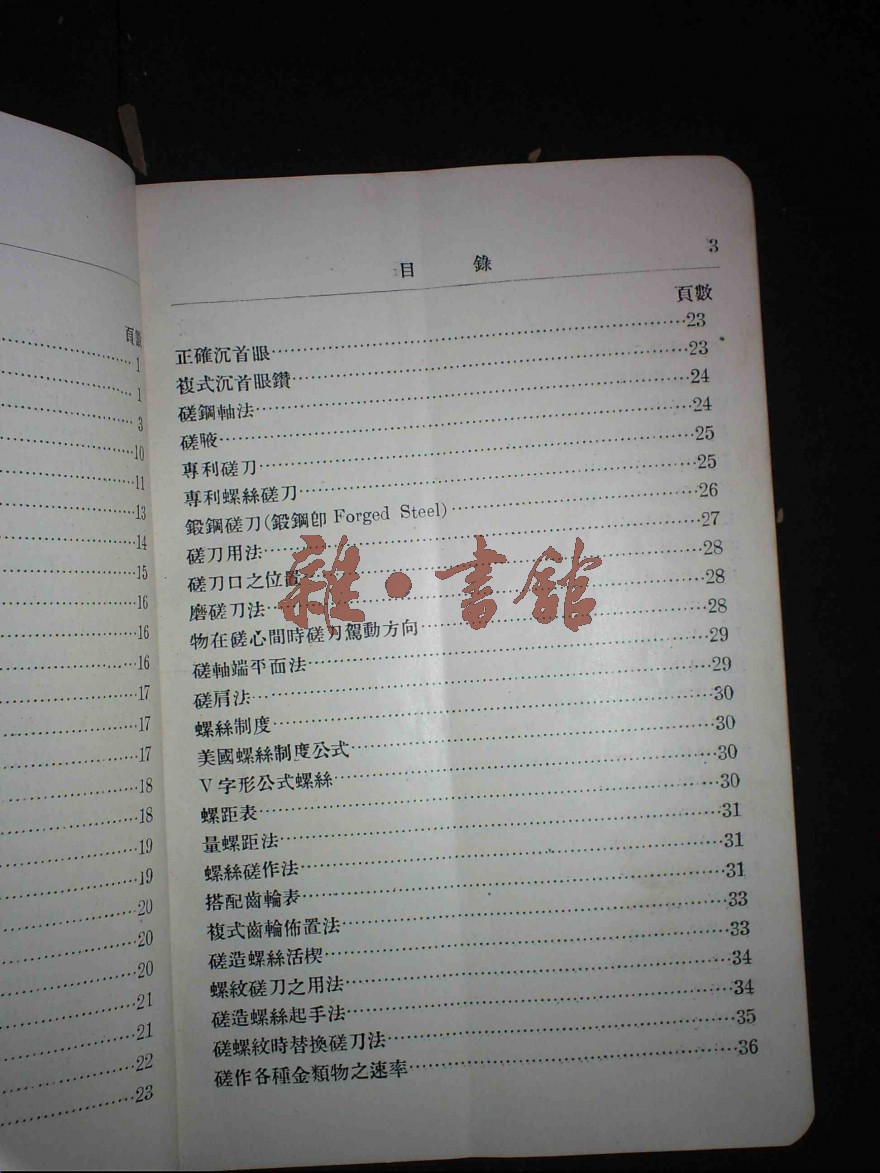 頁數
1
1
3
10
11
13
14
15
16
16
16
17
17
17
18
18
19
19
20
20
20
21
21
22
23
3
目 錄
頁數
正確沉首眼 23
複式沉首眼鑽 23
磋鋼軸法 24
磋腋 24
專利磋刀 25
專利螺絲磋刀 25
鍛鋼磋刀(鍛鋼卽 Forged Steel) 26
磋刀用法 27
磋刀口之位置 28
磨磋刀法 28
物在磋心間時磋刀駕動方向 28
磋軸端平面法 29
磋肩法 29
螺絲制度 30
美國螺絲制度公式 30
V字形公式螺絲 30
螺距表 30
量螺距法 31
螺絲磋作法 31
搭配齒輪表 31
複式齒輪佈置法 33
磋造螺絲活楔 33
螺紋磋刀之用法 34
磋造螺絲起手法 34
磋螺紋時替換磋刀法 35
磋作各種金類物之速率 36
雜·書館